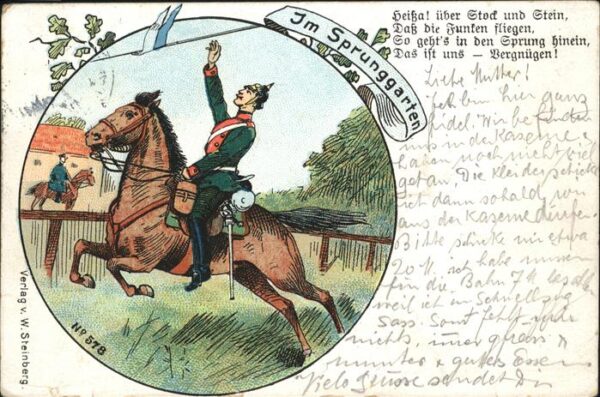 Im Sprunggarten
Heißa! über Stock und Stein,
Daß die Funken fliegen,
So geht's in den Sprung hinein,
Das ist uns — Vergnügen!
Liebe Mutter!
bin hier ganz
fidel. Wir
uns in der Kaserne
haben noch nicht viel
getan. Die Kleider schicke
dann sobald wir
aus der Kaserne dürfen.
Bitte schicke mir etwa
20 M. ich habe
für die Bahn 7 M
weil ich im Schnellzug
sass. Sonst fehlt mir
nichts, immer
munter & gutes Essen
Viele Grüsse sendet Dir
No 578
Verlag v. W. Steinberg.